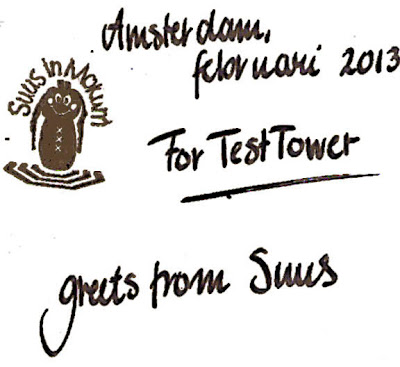 Amsterdam,
februari 2013
Suus in Mokum
For TestTower
greets from Suus